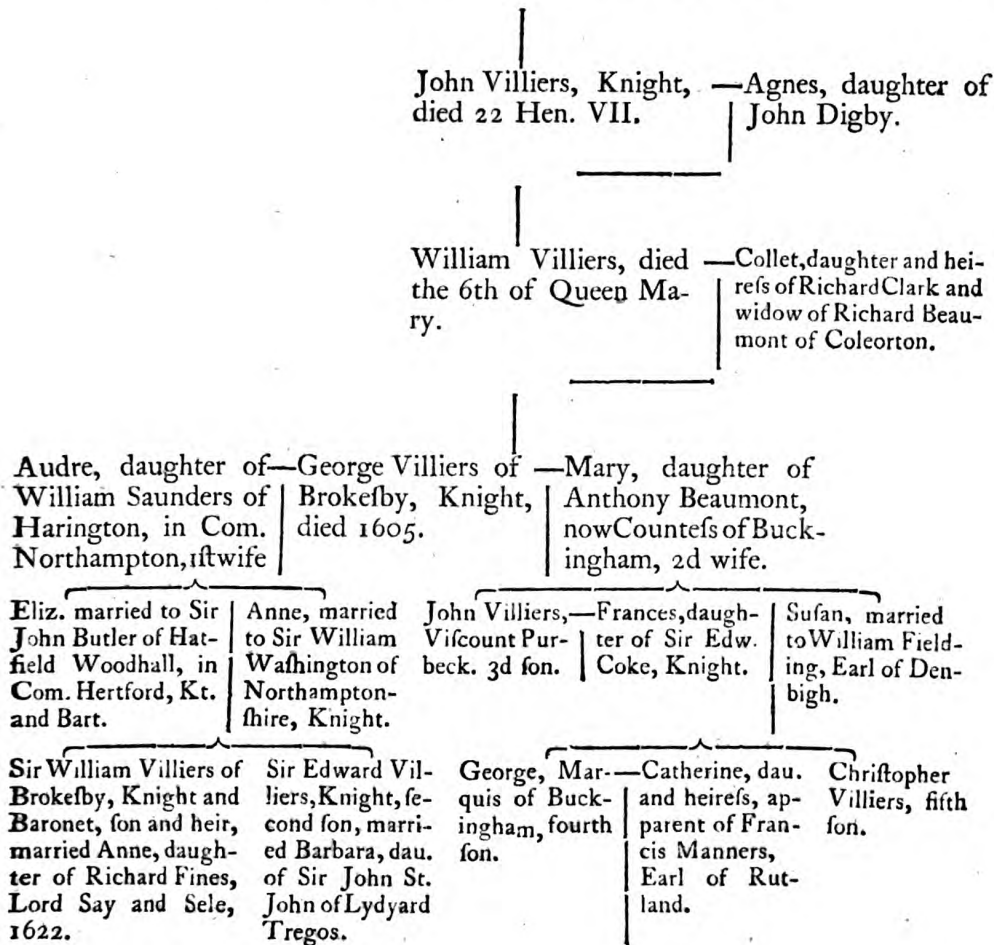 John Villiers, Knight,
died 22 Hen. VII.
—Agnes, daughter of
John Digby.
William Villiers, died
the 6th of Queen Ma-
ry.
—Collet, daughter and hei-
reſs of Richard Clark and
widow of Richard Beau-
mont of Coleorton.
Audre, daughter of
William Saunders of
Harington, in Com.
Northampton, 1ſt wife
—George Villiers of
Brokeſby, Knight,
died 1605.
—Mary, daughter of
Anthony Beaumont,
now Counteſs of Buck-
ingham, 2d wife.
Eliz. married to Sir
John Butler of Hat-
field Woodhall, in
Com. Hertford, Kt.
and Bart.
Anne, married
to Sir William
Waſhington of
Northampton-
ſhire, Knight.
John Villiers,
Viſcount Pur-
beck. 3d ſon.
—Frances, daugh-
ter of Sir Edw.
Coke, Knight.
Suſan, married
to William Field-
ing, Earl of Den-
bigh.
Sir William Villiers of
Brokeſby, Knight and
Baronet, ſon and heir,
married Anne, daugh-
ter of Richard Fines,
Lord Say and Sele,
1622.
Sir Edward Vil-
liers, Knight, ſe-
cond ſon, marri-
ed Barbara, dau.
of Sir John St.
John of Lydyard
Tregos.
George, Mar-
quis of Buck-
ingham, fourth
ſon.
—Catherine, dau.
and heireſs, ap-
parent of Fran-
cis Manners,
Earl of Rut-
land.
Chriſtopher
Villiers, fifth
ſon.